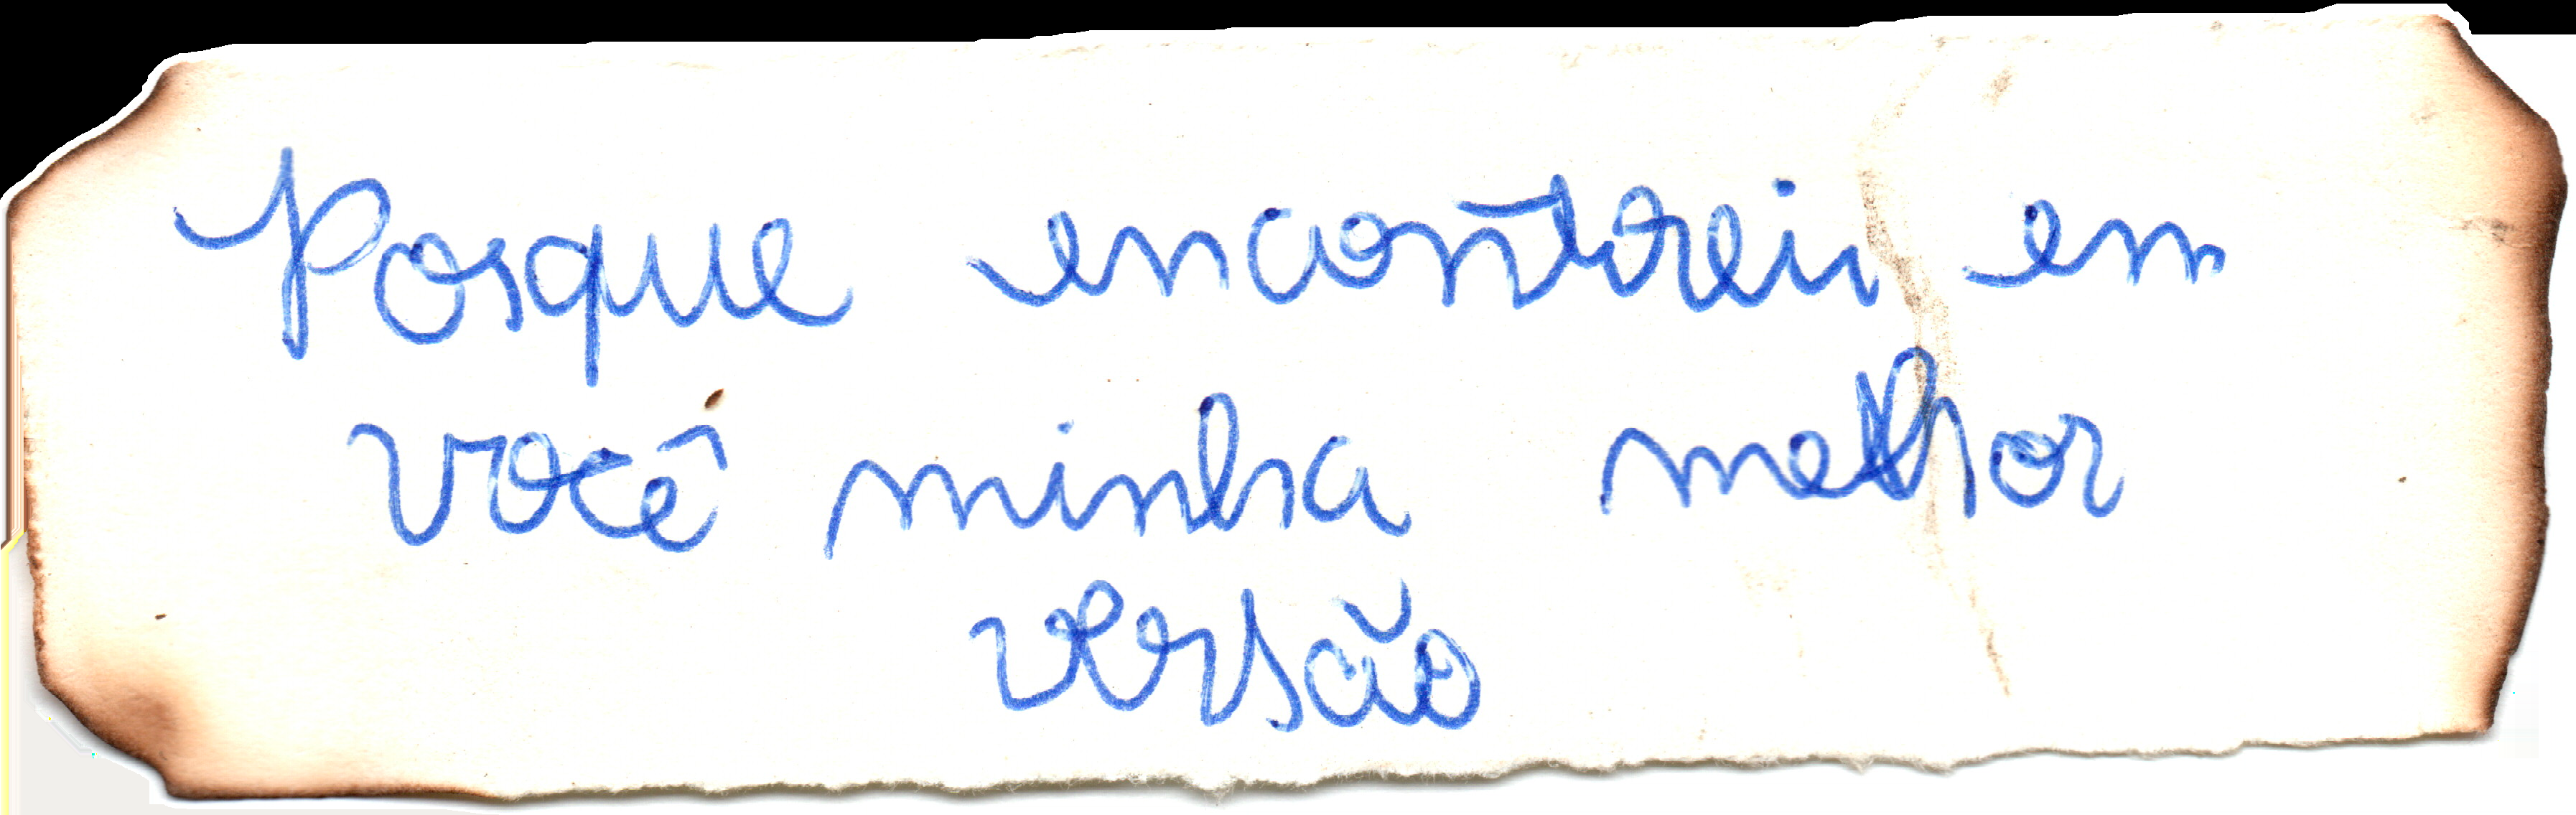 Porque encontrei em
você minha melhor
versão